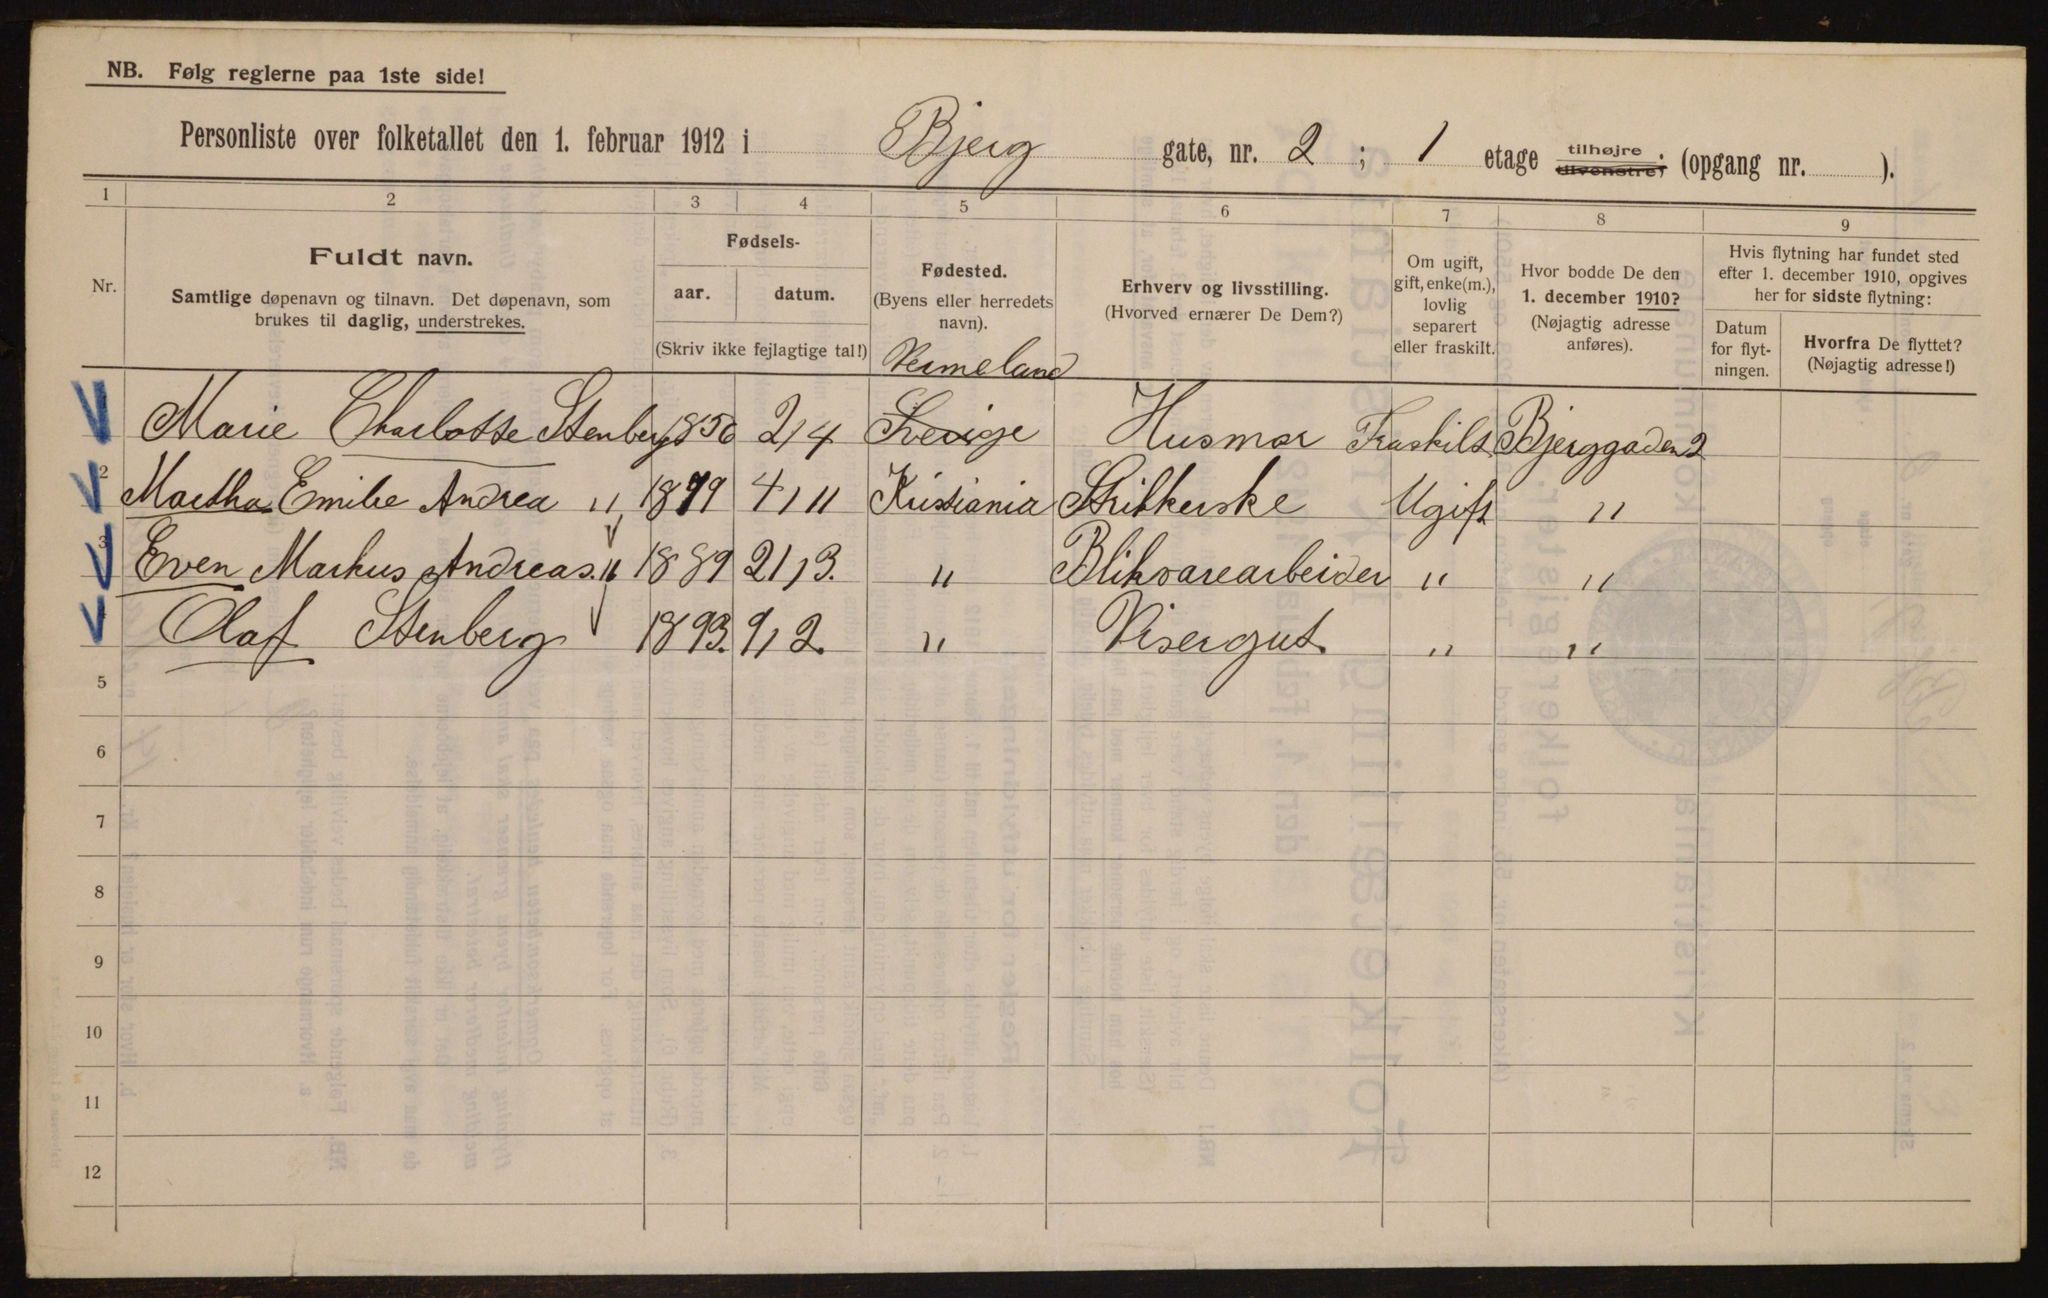 NB. Følg reglerne paa 1ste side!
Personliste over folketallet den 1. februar 1912 i Bjerg gate, nr. 2 ; 1 etage tilhøjre tilvenstre; (opgang nr. ).
1 2 3 4 5 6 7 8 9
Nr.
Fuldt navn.
Samtlige døpenavn og tilnavn. Det døpenavn, som
brukes til daglig, understrekes.
Fødsels-
aar. datum.
(Skriv ikke fejlagtige tal!)
Fødested.
(Byens eller herredets
navn).
Erhverv og livsstilling.
(Hvorved ernærer De Dem?)
Om ugift,
gift, enke(m.),
lovlig
separert
eller fraskilt.
Hvor bodde De den
1. december 1910?
(Nøjagtig adresse
anføres).
Hvis flytning har fundet sted
efter 1. december 1910, opgives
her for sidste flytning:
Datum
for flyt-
ningen.
Hvorfra De flyttet?
(Nøjagtig adresse!)
Vermeland
Marie Charlotte Stenberg 1850 2/4 Sverige Husmor Fraskilt Bjerggaden 2
2 Martha Emilie Andrea " 1879 4/11 Kristiania Ugift "
3 Even Markus Andreas. " 1889 21/3. " Blikvarearbeider " "
Olaf Stenberg 1893. 9/2. " Visergut. " "
5
6
7
8
9
10
11
12